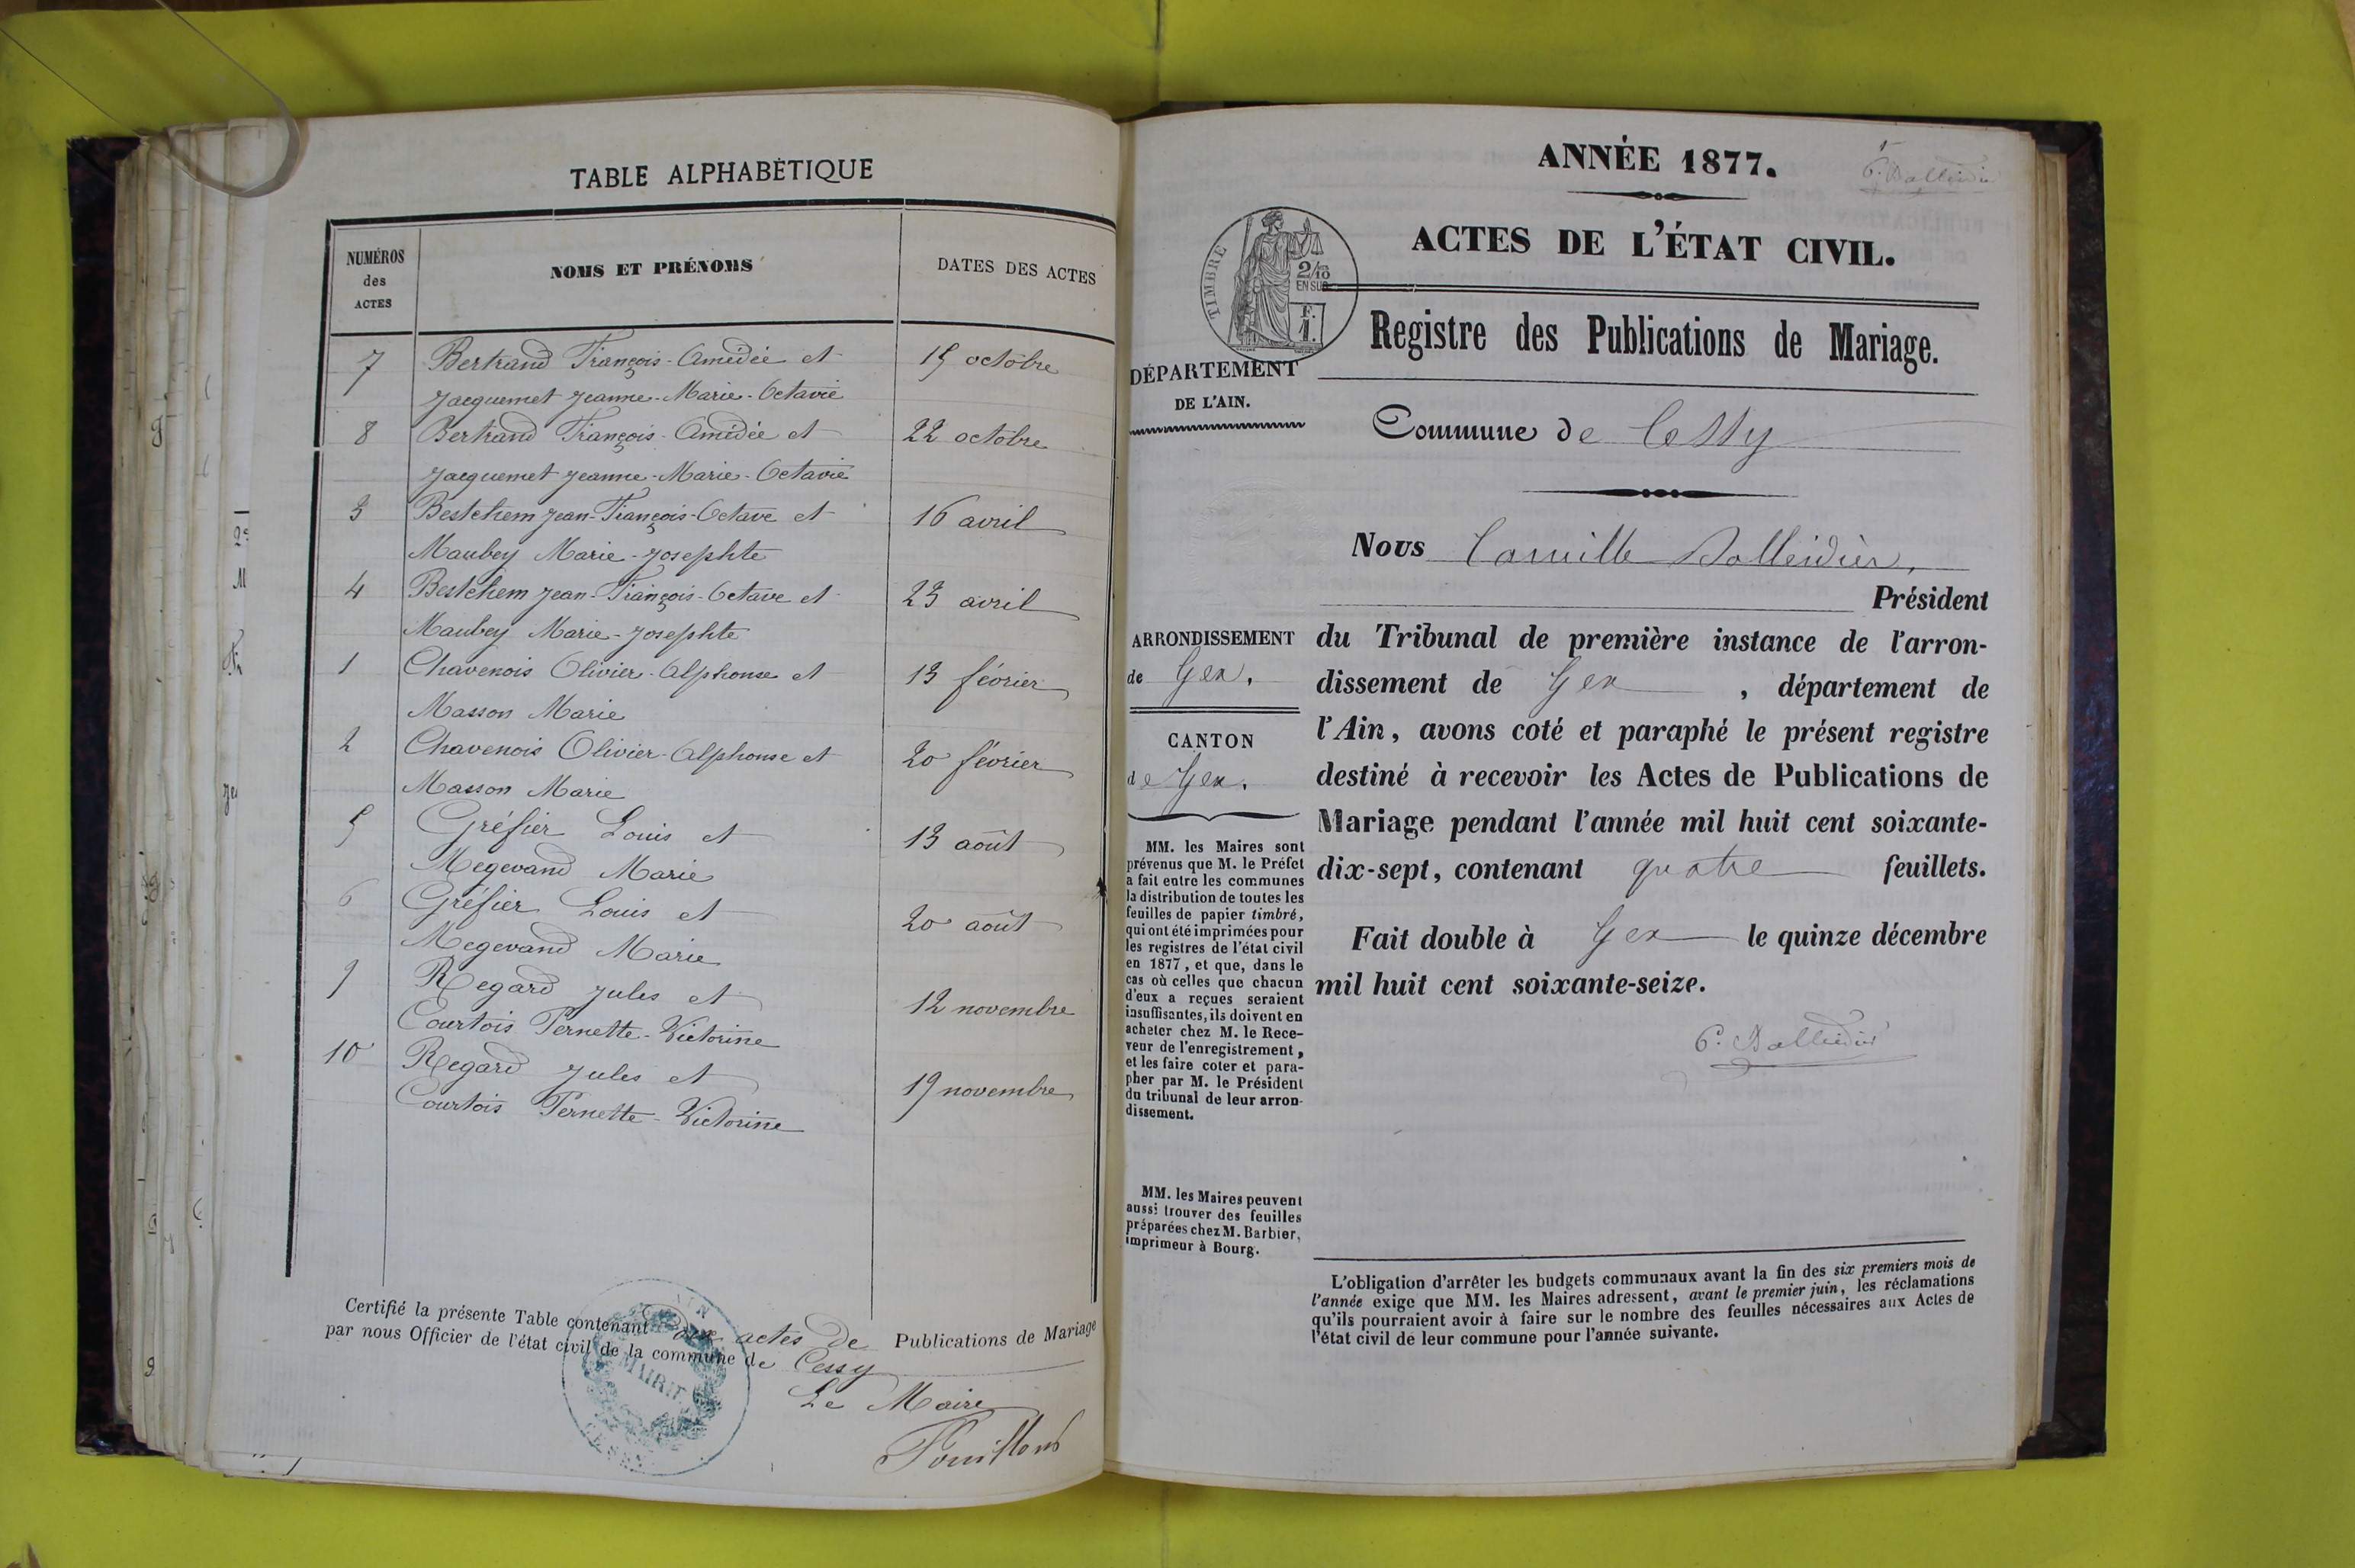 TABLE ALPHABÉTIQUE
NUMÉROS des ACTES
NOMS ET PRÉNOMS
DATES DES ACTES
7 Bertrand François-Amédée et 15 octobre
Jacquemet Jeanne-Marie-Octavie
8 Bertrand François-Amédée et 22 octobre
Jacquemet Jeanne-Marie-Octavie
3 Bestchem Jean-François-Octave et 16 avril
Maubey Marie-Josephte
4 Bestchem Jean-François-Octave et 23 avril
Maubey Marie-Josephte
1 Chavenois Olivier-Alphonse et 13 février
Masson Marie
2 Chavenois Olivier-Alphonse et 20 février
Masson Marie
5 Gréfier Louis et 13 août
Megevand Marie
6 Gréfier Louis et 20 août
Megevand Marie
9 Regard Jules et 12 novembre
Courtois Pernette-Victorine
10 Regard Jules et 19 novembre
Courtois Pernette-Victorine
Certifié la présente Table contenant dix actes de Publications de Mariage
par nous Officier de l'état civil de la commune de Cessy
MAIRIE
Le Maire
ANNÉE 1877.
ACTES DE L'ÉTAT CIVIL.
TIMBRE
2/10
EN SUS
F.
1.
Registre des Publications de Mariage.
DÉPARTEMENT
DE L'AIN.
Commune de Cessy
Nous Camille Balleidier,
Président
ARRONDISSEMENT
de Gex.
CANTON
de Gex.
du Tribunal de première instance de l'arron-
dissement de Gex, département de
l'Ain, avons coté et paraphé le présent registre
destiné à recevoir les Actes de Publications de
Mariage pendant l'année mil huit cent soixante-
dix-sept, contenant quatre feuillets.
Fait double à Gex le quinze décembre
mil huit cent soixante-seize.
C. Balleidier
MM. les Maires sont
prévenus que M. le Préfet
a fait entre les communes
la distribution de toutes les
feuilles de papier timbré,
qui ont été imprimées pour
les registres de l'état civil
en 1877, et que, dans le
cas où celles que chacun
d'eux a reçues seraient
insuffisantes, ils doivent en
acheter chez M. le Rece-
veur de l'enregistrement,
et les faire coter et para-
pher par M. le Président
du tribunal de leur arron-
dissement.
MM. les Maires peuvent
aussi trouver des feuilles
préparées chez M. Barbier,
imprimeur à Bourg.
L'obligation d'arrêter les budgets communaux avant la fin des six premiers mois de
l'année exige que MM. les Maires adressent, avant le premier juin, les réclamations
qu'ils pourraient avoir à faire sur le nombre des feuilles nécessaires aux Actes de
l'état civil de leur commune pour l'année suivante.